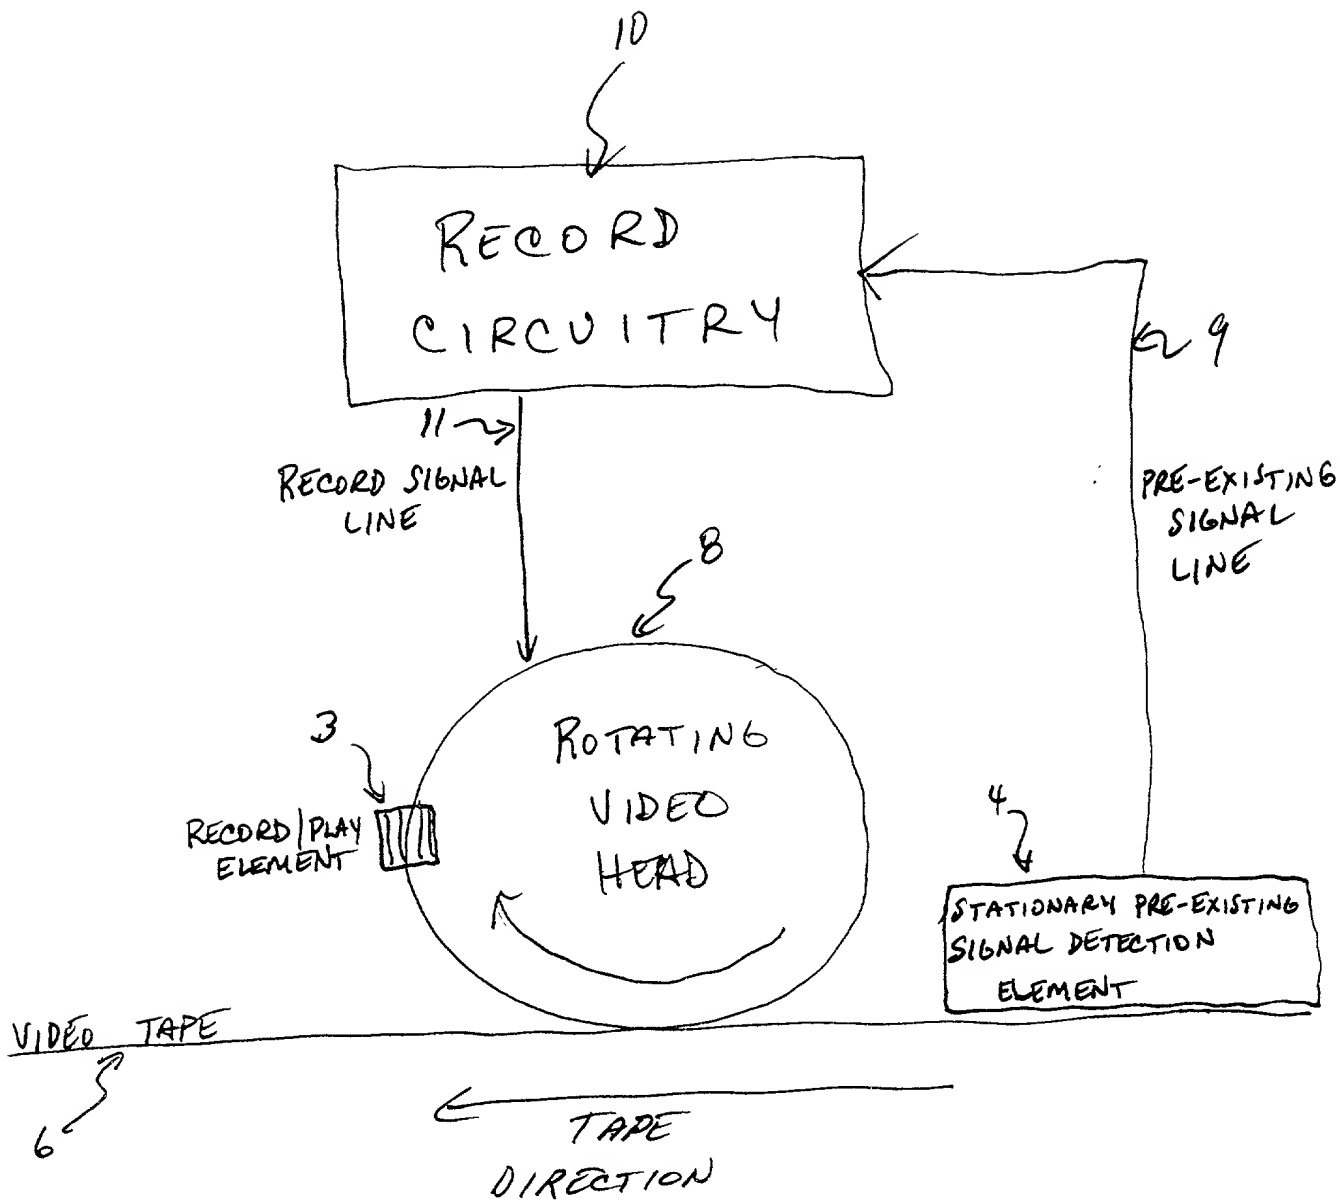 10
RECORD
CIRCUITRY
9
11
RECORD SIGNAL
LINE
PRE-EXISTING
SIGNAL
LINE
8
3
ROTATING
VIDEO
HEAD
RECORD/PLAY
ELEMENT
4
STATIONARY PRE-EXISTING
SIGNAL DETECTION
ELEMENT
VIDEO TAPE
6
TAPE
DIRECTION